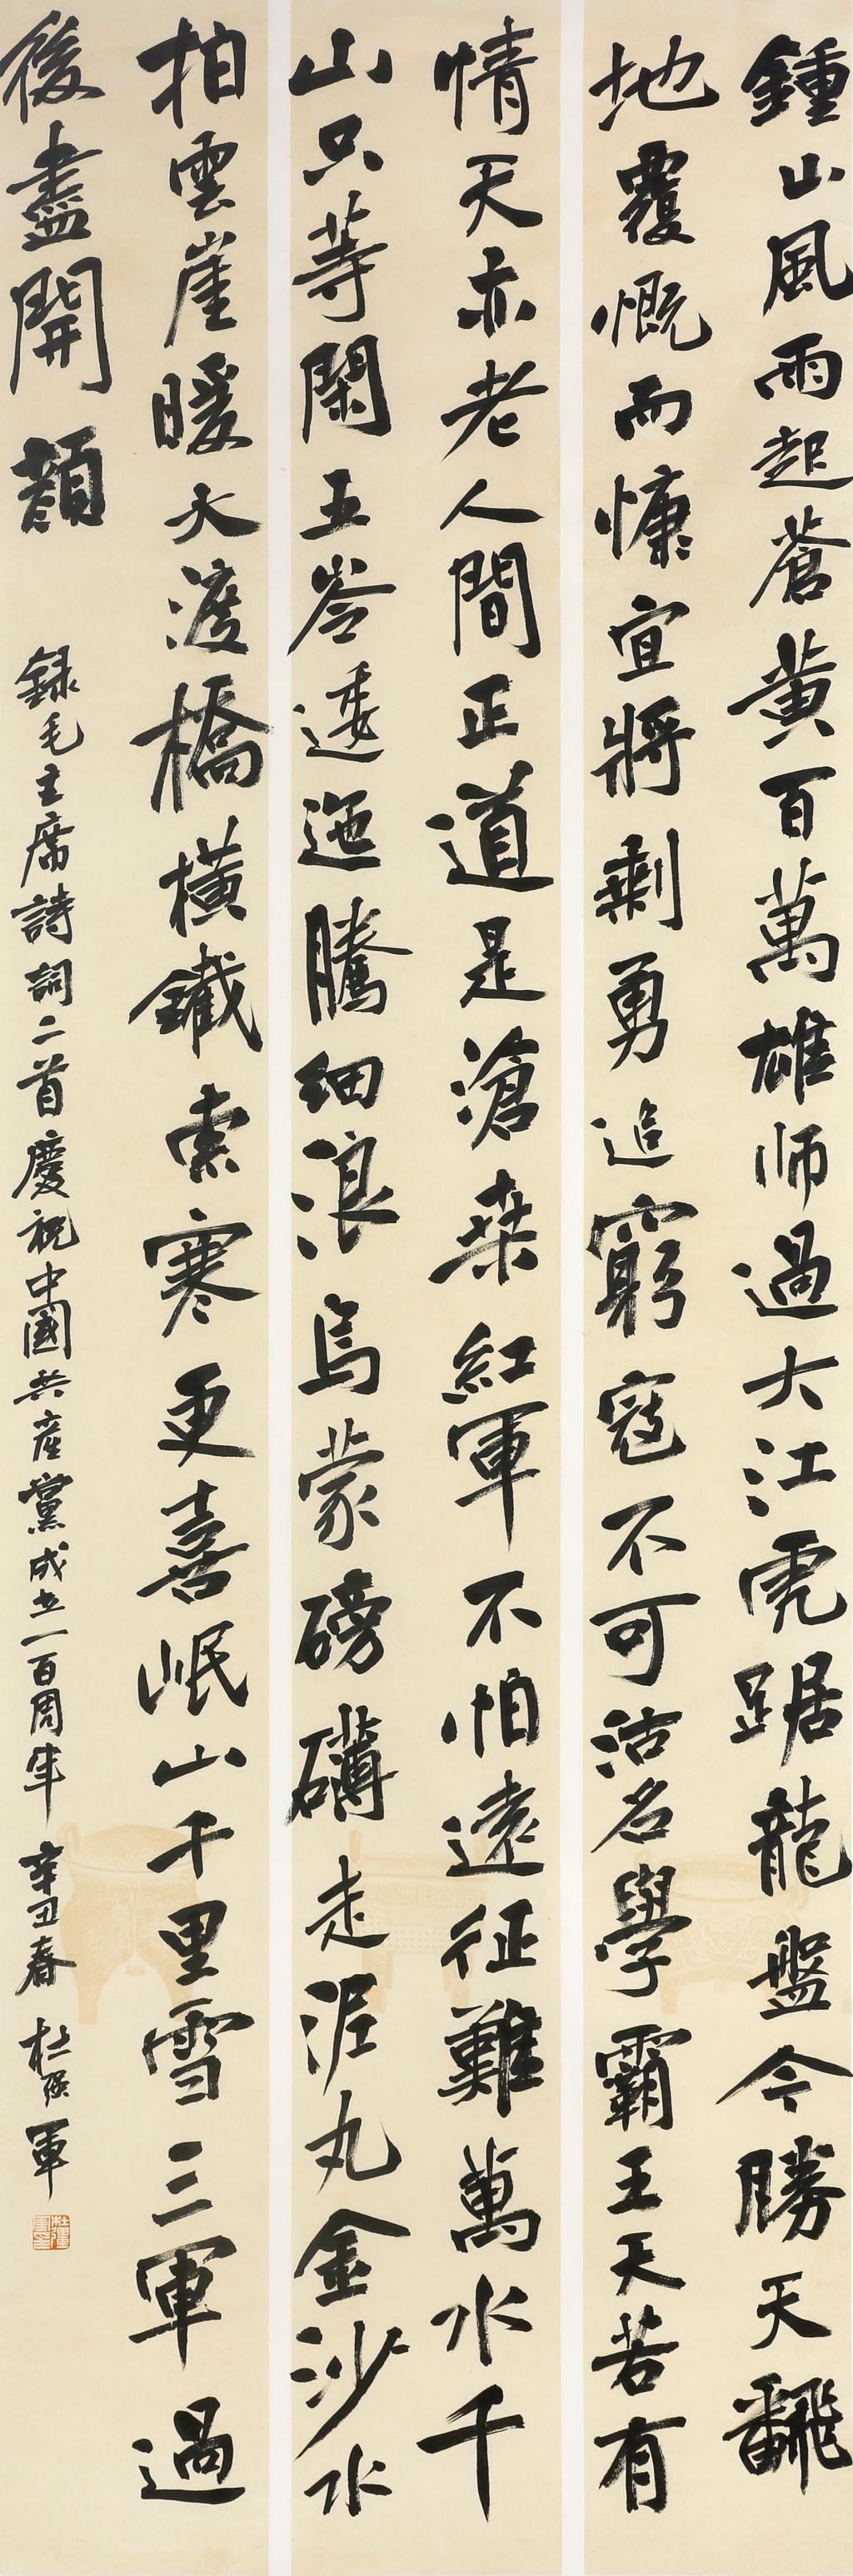 鍾山風雨起蒼黃百萬雄师過大江虎踞龍盤今勝天翻
地覆慨而慷宜將剩勇追窮寇不可沽名學霸王天若有
情天亦老人間正道是滄桑紅軍不怕遠征難萬水千
山只等閑五岺逶迤騰细浪烏蒙磅礴走泥丸金沙水
拍雲崖暖大渡橋橫鐵索寒更喜岷山千里雪三軍過
後盡開顏
録毛主席詩詞二首慶祝中國共産黨成立一百周年 辛丑春 杜軍